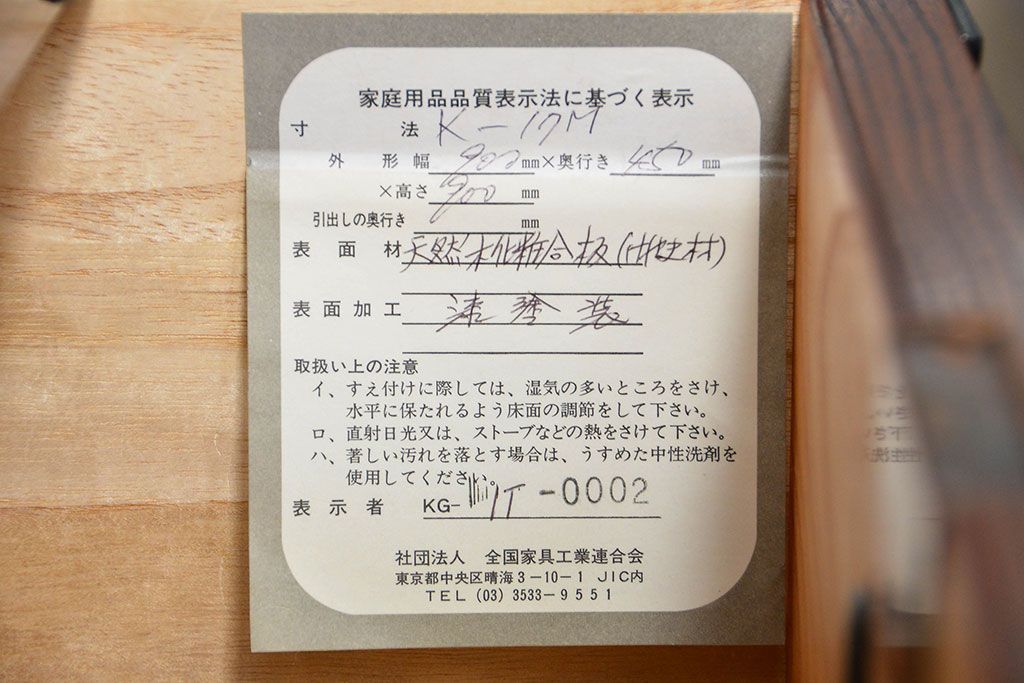 家庭用品品質表示法に基づく表示
寸法 K-17M
外形幅 900mm×奥行き 450mm
×高さ 900mm
引出しの奥行き mm
表面材 天然木化粧合板
表面加工 漆塗装
取扱い上の注意
イ、すえ付けに際しては、湿気の多いところをさけ、
水平に保たれるよう床面の調節をして下さい。
ロ、直射日光又は、ストーブなどの熱をさけて下さい。
ハ、著しい汚れを落とす場合は、うすめた中性洗剤を
使用してください。
表示者 KG- IT-0002
社団法人 全国家具工業連合会
東京都中央区晴海3-10-1 JIC内
TEL (03) 3533-9551